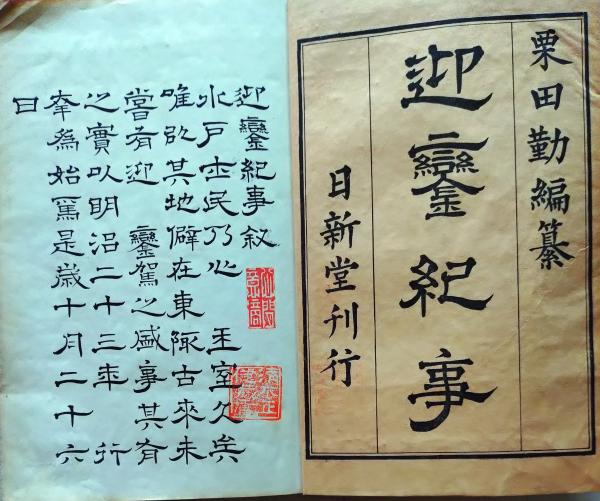 栗田勤編纂
迎鑾紀事
日新堂刊行
迎鑾紀事叙
水戸士民乃心 王室久矣
唯其地僻在東陬古來未
嘗有迎 鑾駕之盛事其有
之實以明治二十三年 行
幸為始焉是歳十月二十六
日